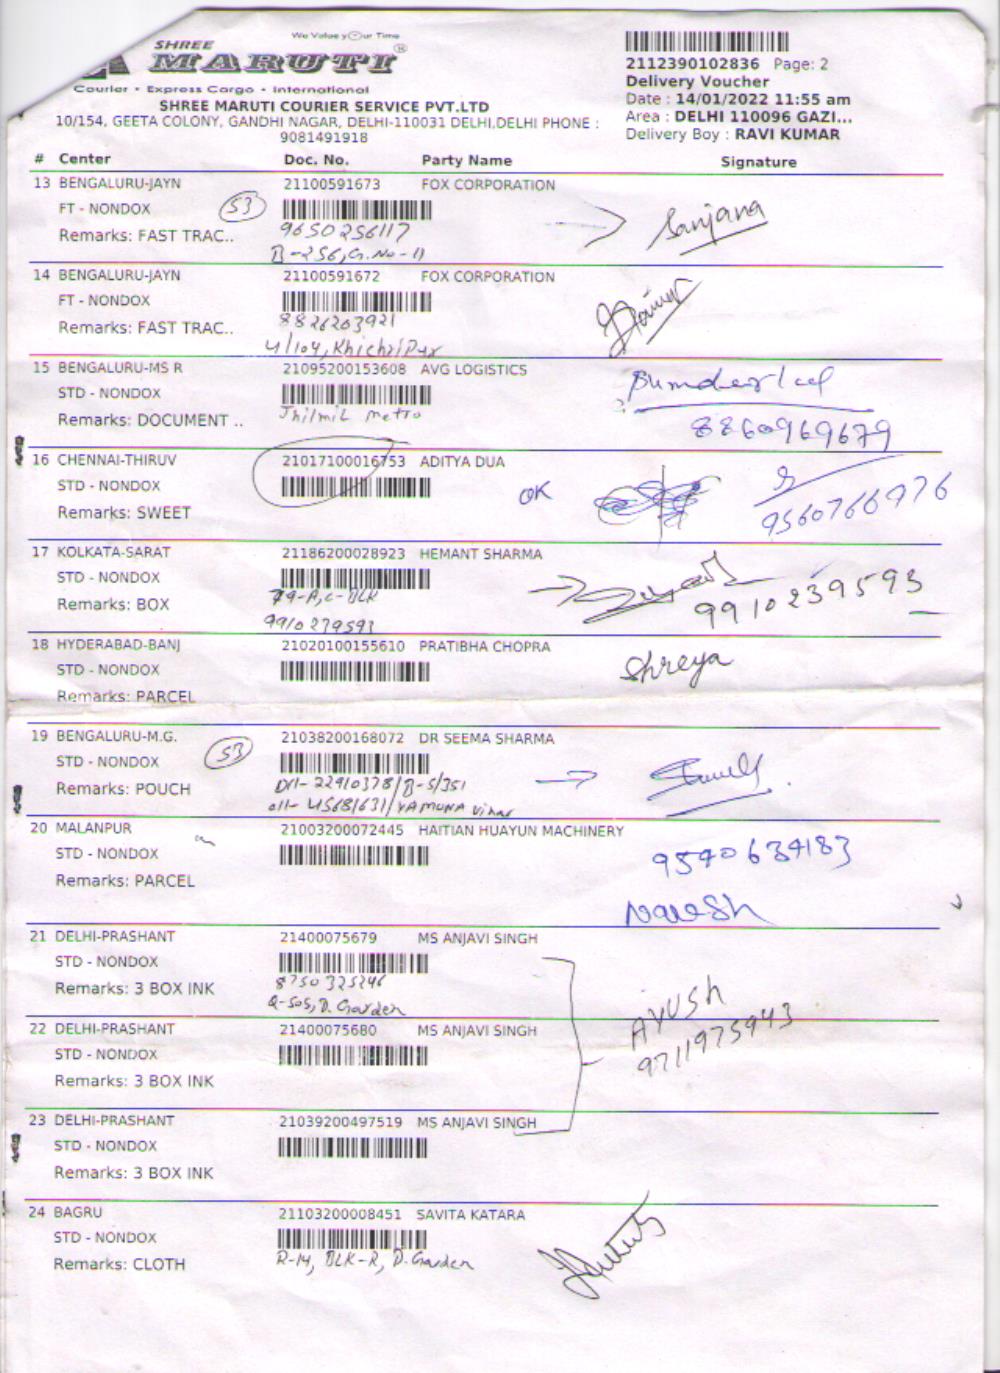 We Value your Time
SHREE
MARUTI
Courier • Express Cargo • International
SHREE MARUTI COURIER SERVICE PVT.LTD
10/154, GEETA COLONY, GANDHI NAGAR, DELHI-110031 DELHI,DELHI PHONE :
9081491918
2112390102836 Page: 2
Delivery Voucher
Date : 14/01/2022 11:55 am
Area : DELHI 110096 GAZI...
Delivery Boy : RAVI KUMAR
# Center Doc. No. Party Name Signature
13 BENGALURU-JAYN 21100591673 FOX CORPORATION
FT - NONDOX 53
Remarks: FAST TRAC.. 9650256117 Sanjana
B-256, G.No-11
14 BENGALURU-JAYN 21100591672 FOX CORPORATION
FT - NONDOX
Remarks: FAST TRAC.. 8826203921
4/104, Khichripur
15 BENGALURU-MS R 21095200153608 AVG LOGISTICS
STD - NONDOX
Remarks: DOCUMENT .. Jhilmil metro
8860969679
16 CHENNAI-THIRUV 21017100016753 ADITYA DUA
STD - NONDOX OK
Remarks: SWEET 9560766976
17 KOLKATA-SARAT 21186200028923 HEMANT SHARMA
STD - NONDOX
Remarks: BOX 79-A, C-BLK 9910239593
9910239593
18 HYDERABAD-BANJ 21020100155610 PRATIBHA CHOPRA
STD - NONDOX Shreya
Remarks: PARCEL
19 BENGALURU-M.G. 21038200168072 DR SEEMA SHARMA
STD - NONDOX 53
Remarks: POUCH 011-22910378/B-5/351
011-45681631/YAMUNA Vihar
20 MALANPUR 21003200072445 HAITIAN HUAYUN MACHINERY
STD - NONDOX 9540634183
Remarks: PARCEL
Naresh
21 DELHI-PRASHANT 21400075679 MS ANJAVI SINGH
STD - NONDOX
Remarks: 3 BOX INK 8750325246
Q-505, D. Garden
AYUSH
22 DELHI-PRASHANT 21400075680 MS ANJAVI SINGH
9711975943
STD - NONDOX
Remarks: 3 BOX INK
23 DELHI-PRASHANT 21039200497519 MS ANJAVI SINGH
STD - NONDOX
Remarks: 3 BOX INK
24 BAGRU 21103200008451 SAVITA KATARA
STD - NONDOX
Remarks: CLOTH R-14, BLK-R, D. Garden